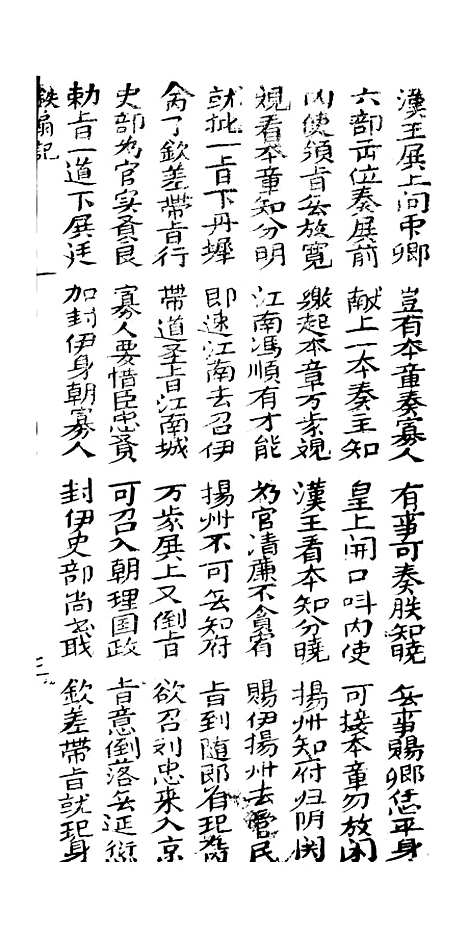 漢王展上问巾卿 豈有本章奏寡人 有事可奏朕知曉 無事賜卿恁平身
六部两位奏展前 献上一本奏主知 皇上開口呌内使 可接本章勿放闲
内使领旨無放寛 繳起本章万歲視 漢王看本知分曉 揚州知府归阴関
視看本章知分明 江南馮順有才能 为官清廉不貪賄 賜伊揚州去管民
就批一旨下丹墀 即速江南去召伊 揚州不可無知府 旨到随即省
禽了欽差帶旨行 帶道圣旨江南城 万歲展上又倒旨 欲召刘忠来入京
史部为官实賁良 寡人要惜臣忠賁 可召入朝理国政 旨意倒落無延
勅旨一道下展廷 加封伊身朝寡人 封伊史部尚 欽差帶旨就起身
鉄扇記 一 三